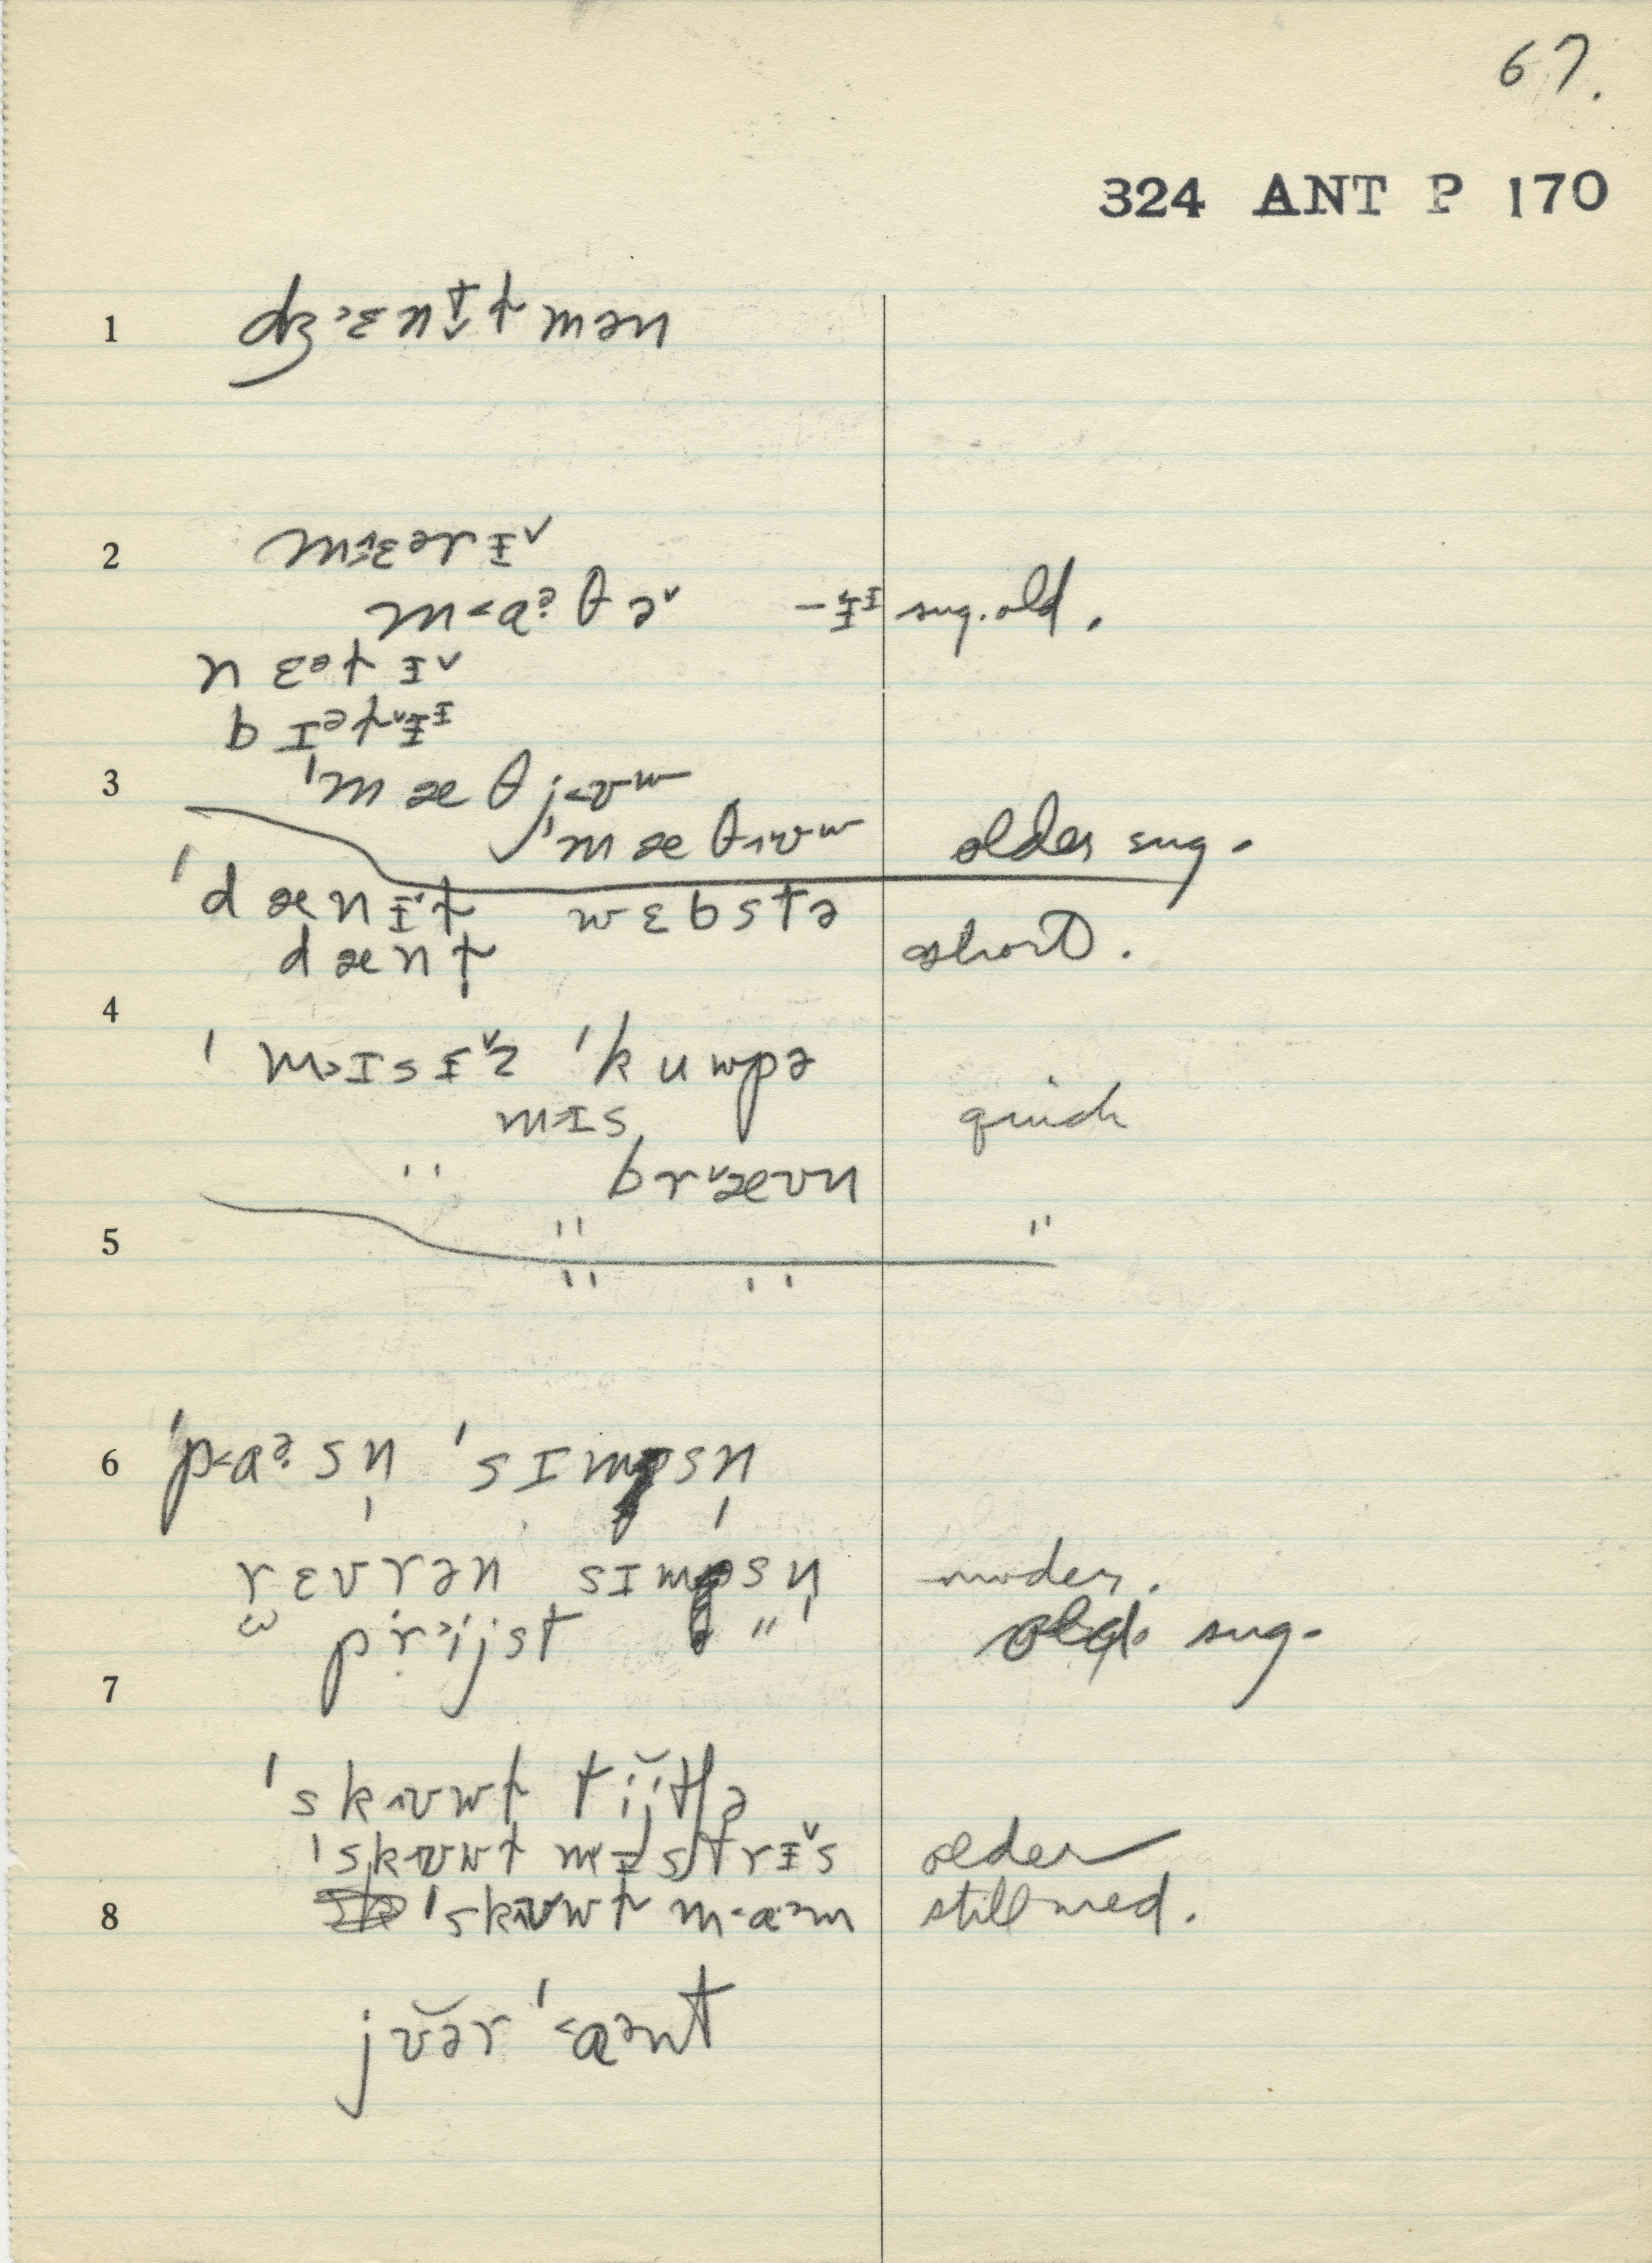 67.
324 ANT P 170
1 dʒ˃ɛnt̬t mən
2 mɛərɨ˅
m˂aᵊ̣θə˅ -ɨ˅ᶦ sug. old.
n ɛᵊt ɨ˅
b ɪᵊt˅ɨᶦ
3 ˈmæθj˂ʊʷ
ˈmæθ˄ʊʷ older sug.
ˈdænɨ˅t wɛbstə
dænt short.
4
ˈm˃ɪsɨ˅z ˈkuwpə
m˃ɪs quick
" br˅æʊn
5 " "
" "
6 ˈp˂aᵊ̣sn̩ ˈsɪmpsn̩
rɛvrən sɪmpsn̩ moder.
pr˃ijst " old. sug.
7
ˈsk˄ʊwt tĭjtʃə
ˈsk˄ʊwt mɨstrɨ˅s older
8 ˈsk˄ʊwt m˂aᵊm still used.
jʊ̆ər ˈ˂aᵊnt